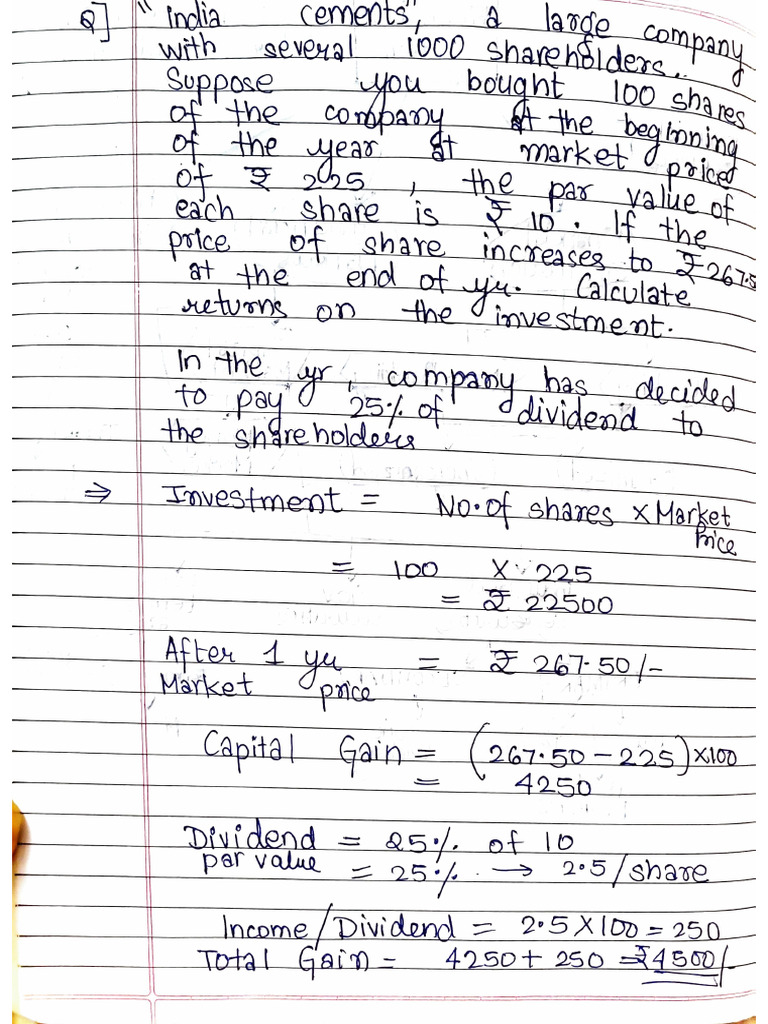 Q] "India cements", a large company
with several 1000 shareholders.
Suppose you bought 100 shares
of the company at the beginning
of the year at market price
of ₹ 225, the par value of
each share is ₹ 10. If the
price of share increases to ₹ 267.5
at the end of yr. Calculate
returns on the investment.
In the yr, company has decided
to pay 25% of dividend to
the shareholders
⇒ Investment = No. of shares × Market Price
= 100 × 225
= ₹ 22500
After 1 yr = ₹ 267.50/-
Market price
Capital Gain = (267.50 - 225) ×100
= 4250
Dividend = 25% of 10
par value = 25% → 2.5/share
Income/Dividend = 2.5 × 100 = 250
Total Gain = 4250 + 250 = ₹4500/-